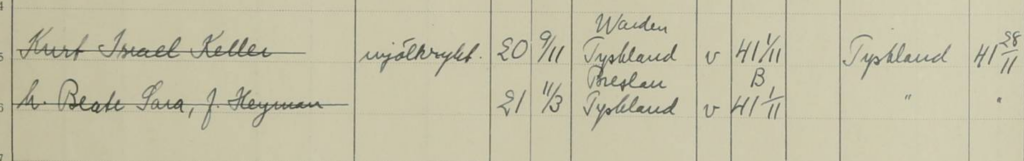 Warden
Kurt Israel Keller mjölkrykt. 20 9/11 Tyskland v 41 1/11 Tyskland 41 28/11
Breslau B
h. Beate Sara, f. Heyman 21 11/3 Tyskland v 41 1/11 " "